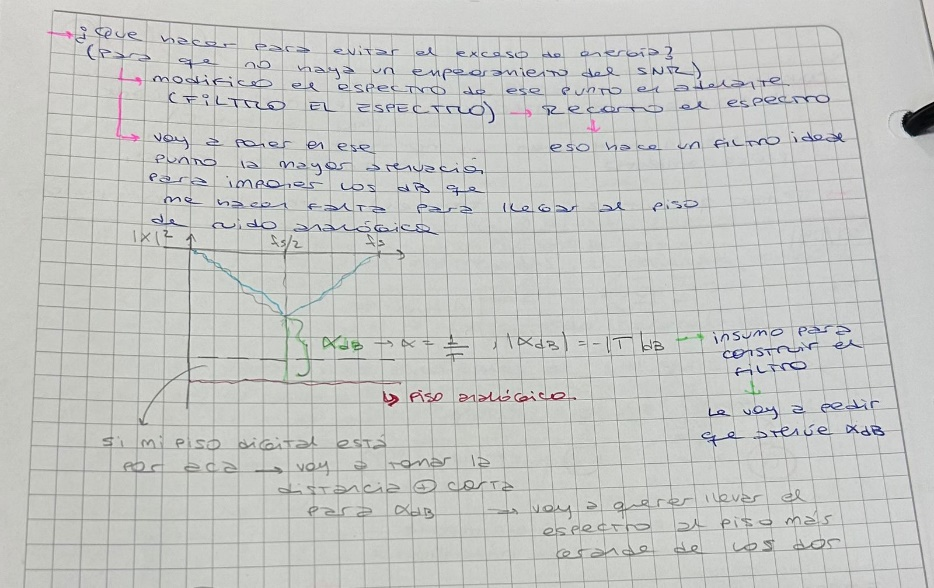 → ¿Que hacer para evitar el exceso de energia?
(Para que no haya un empeoramiento del SNR)
↳ modifico el espectro de ese punto en adelante
(FILTRO EL ESPECTRO) → Recorto el espectro
↓
eso hace un filtro ideal
↳ voy a poner en ese
punto la mayor atenuación
para imponer los dB que
me hacen falta para llegar al piso
de ruido analógico
|X|² fs/2 fs
αdB → α = 1/T , |αdB| = -|T|dB → insumo para
construir el
filtro
↓
Le voy a pedir
que atenúe αdB
↳ Piso analógico.
si mi piso digital está
por acá → voy a tomar la
distancia ⊕ corta
para αdB → voy a querer llevar el
espectro al piso más
grande de los dos